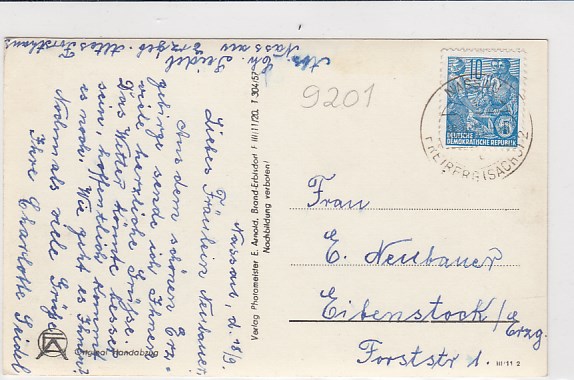 Abs. Ch. Seidel
Nassau Erzgeb. Altes Forsthaus
Nassau, d. 18/9.
Liebes Fräulein Neubauer,
Aus dem schönen Erz-
gebirge sende ich Ihnen
viele herzliche Grüße.
Das Wetter könnte besser
sein, hoffentlich kommt
es noch. Wie geht es Ihnen?
Nochmals viele Grüße
Ihre Charlotte Seidel
Original Handabzug
Verlag Photomeister E. Arnold, Brand-Erbisdorf I III/11/120, T 304/57
Nachbildung verboten!
9201
10
5
DEUTSCHE
DEMOKRATISCHE REPUBLIK
NASSAU
FREIBERG (SACHS) 2
Frau
E. Neubauer
Eibenstock/Erzg.
Forststr 1.
III 11 2